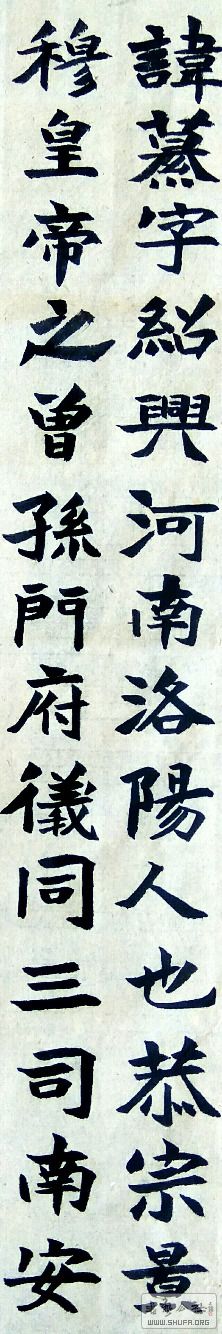 諱字紹興河南洛陽人也恭宗景
穆皇帝之曾孫門府儀同三司南安
WWW.SHUFA.ORG